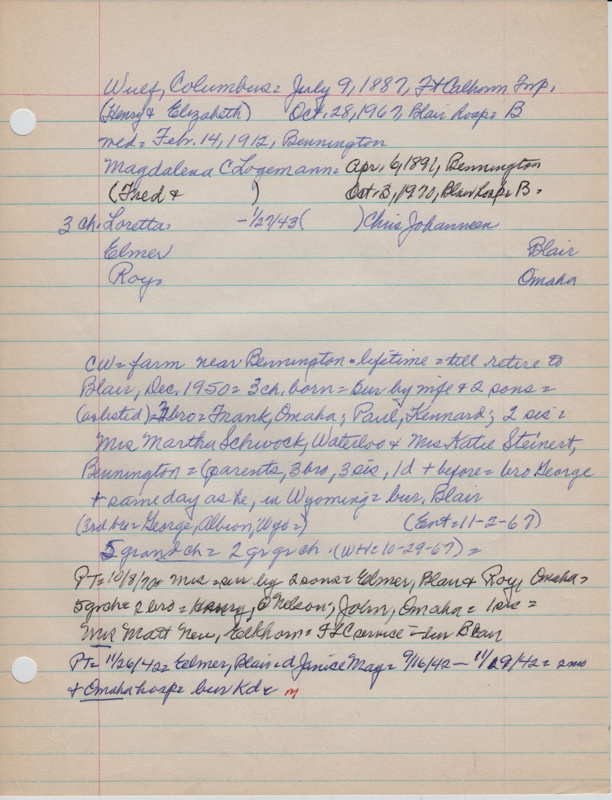 Wulf, Columbus = July 9, 1887, Ft Calhoun Twp,
(Henry & Elizabeth) Oct. 28, 1967, Blair hosp = B
med = Febr. 14, 1912, Bennington
Magdalena C Logemann = Apr. 6, 1891, Bennington
(Fred & ) Oct. 3, 1970, Blair hosp = B =
3 ch = Loretta = - 1/27/43 ( ) Chris Johannsen
Elmer Blair
Roy = Omaha
CW = farm near Bennington = lifetime = till retire to
Blair, Dec. 1950 = 3 ch. born = sur by wife & 2 sons =
(as listed) = bro = Frank, Omaha; Paul, Kennard; 2 sis =
Mrs Martha Schwock, Waterloo & Mrs Katie Steinert,
Bennington = (parents, 3 bro, 3 sis, 1d + before = bro George
+ same day as he, in Wyoming = bur, Blair
(3rd bro = George, Albion, Wyo =) (Ent = 11-2-67)
5 grand ch = 2 gr gr ch. (WH = 10-29-67) =
PT = 10/8/70 = Mrs = sur by 2 sons = Elmer, Blair & Roy, Omaha =
5 grch = 2 bro = Henry, Nelson; John, Omaha = 1 sis =
Mrs Matt New, Elkhorn = FLC = bur Blair
PT = 11/26/42 = Elmer, Blair = d Janice Mag = 9/16/42 - 11/19/42 = 2 mo
+ Omaha hosp = bur Kd